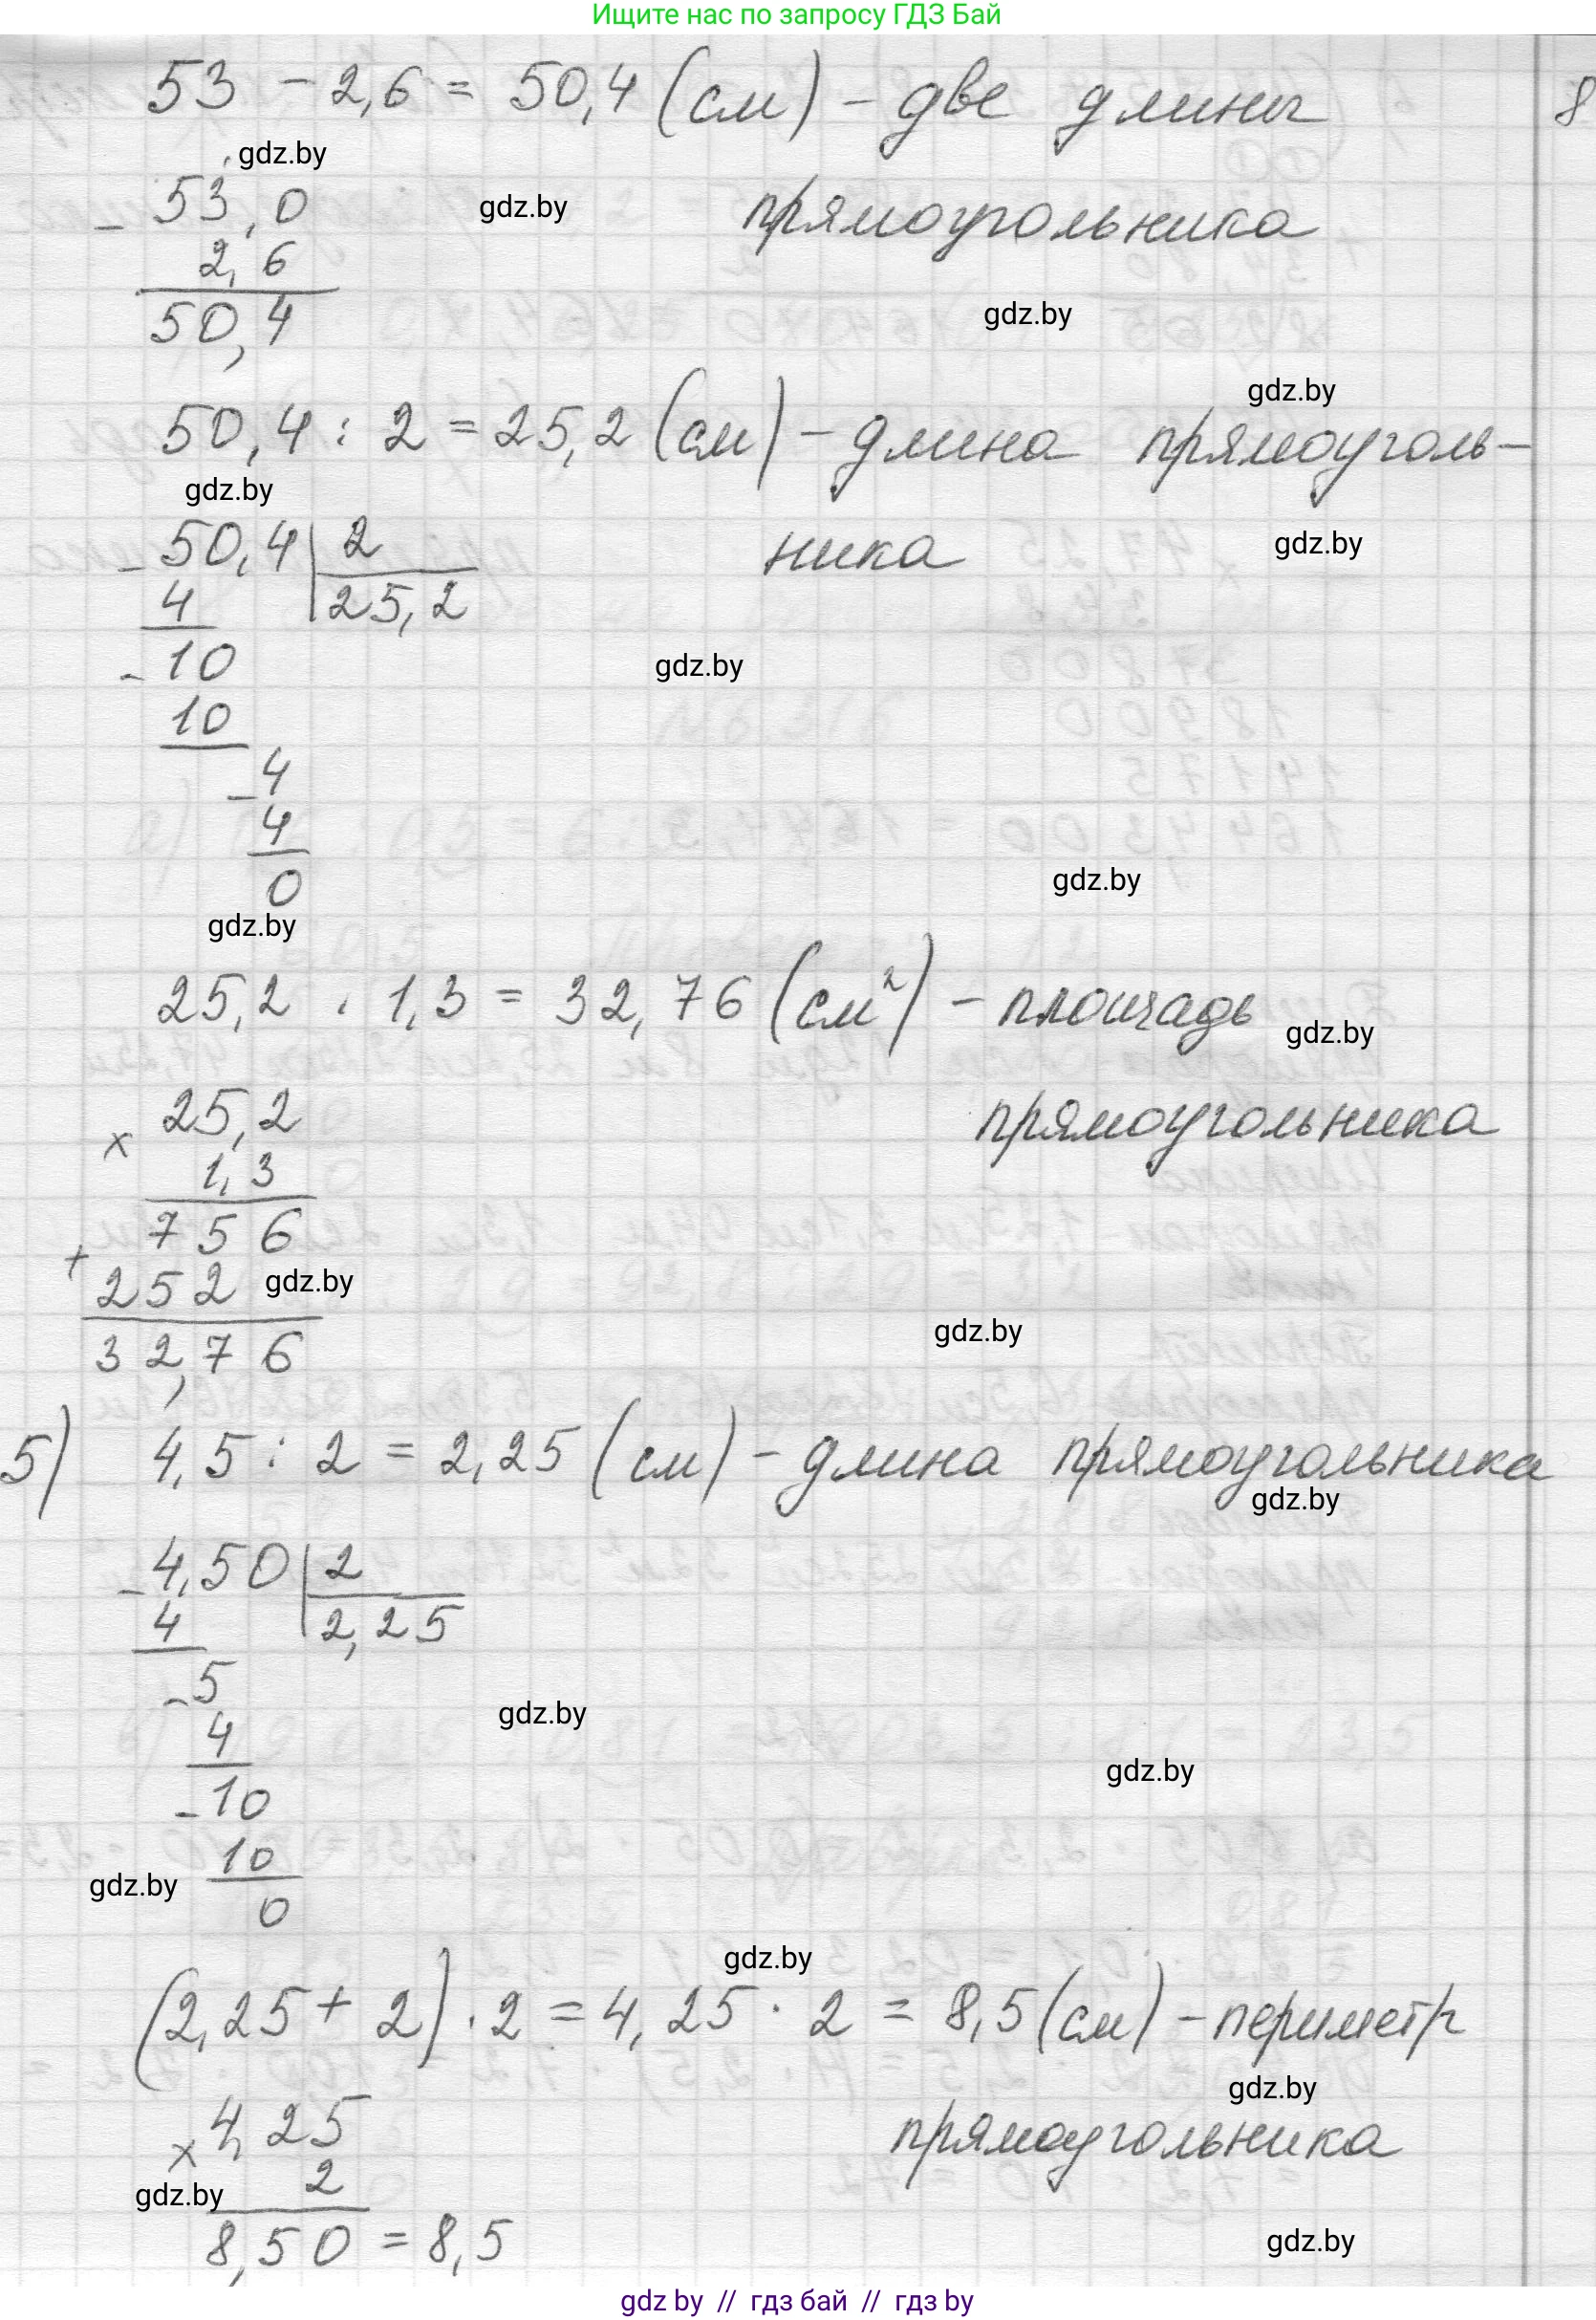 Ищите нас по запросу ГДЗ Бай
53 - 2,6 = 50,4 (см) - две длины
8
gdz.by
53,0
gdz.by
прямоугольника
- 2,6
50,4
gdz.by
gdz.by
50,4 : 2 = 25,2 (см) - длина прямоуголь-
gdz.by
ника
gdz.by
- 50,4 | 2
4 25,2
- 10
gdz.by
10
- 4
4
0
gdz.by
gdz.by
25,2 · 1,3 = 32,76 (см²) - площадь
gdz.by
прямоугольника
× 25,2
1,3
756
+ 252
gdz.by
32,76
gdz.by
5) 4,5 : 2 = 2,25 (см) - длина прямоугольника
gdz.by
- 4,50 | 2
4 2,25
- 5
gdz.by
4
gdz.by
- 10
10
gdz.by
0
gdz.by
(2,25 + 2) · 2 = 4,25 · 2 = 8,5 (см) - периметр
gdz.by
прямоугольника
× 4,25
2
gdz.by
8,50 = 8,5
gdz.by
gdz by // гдз бай // гдз by